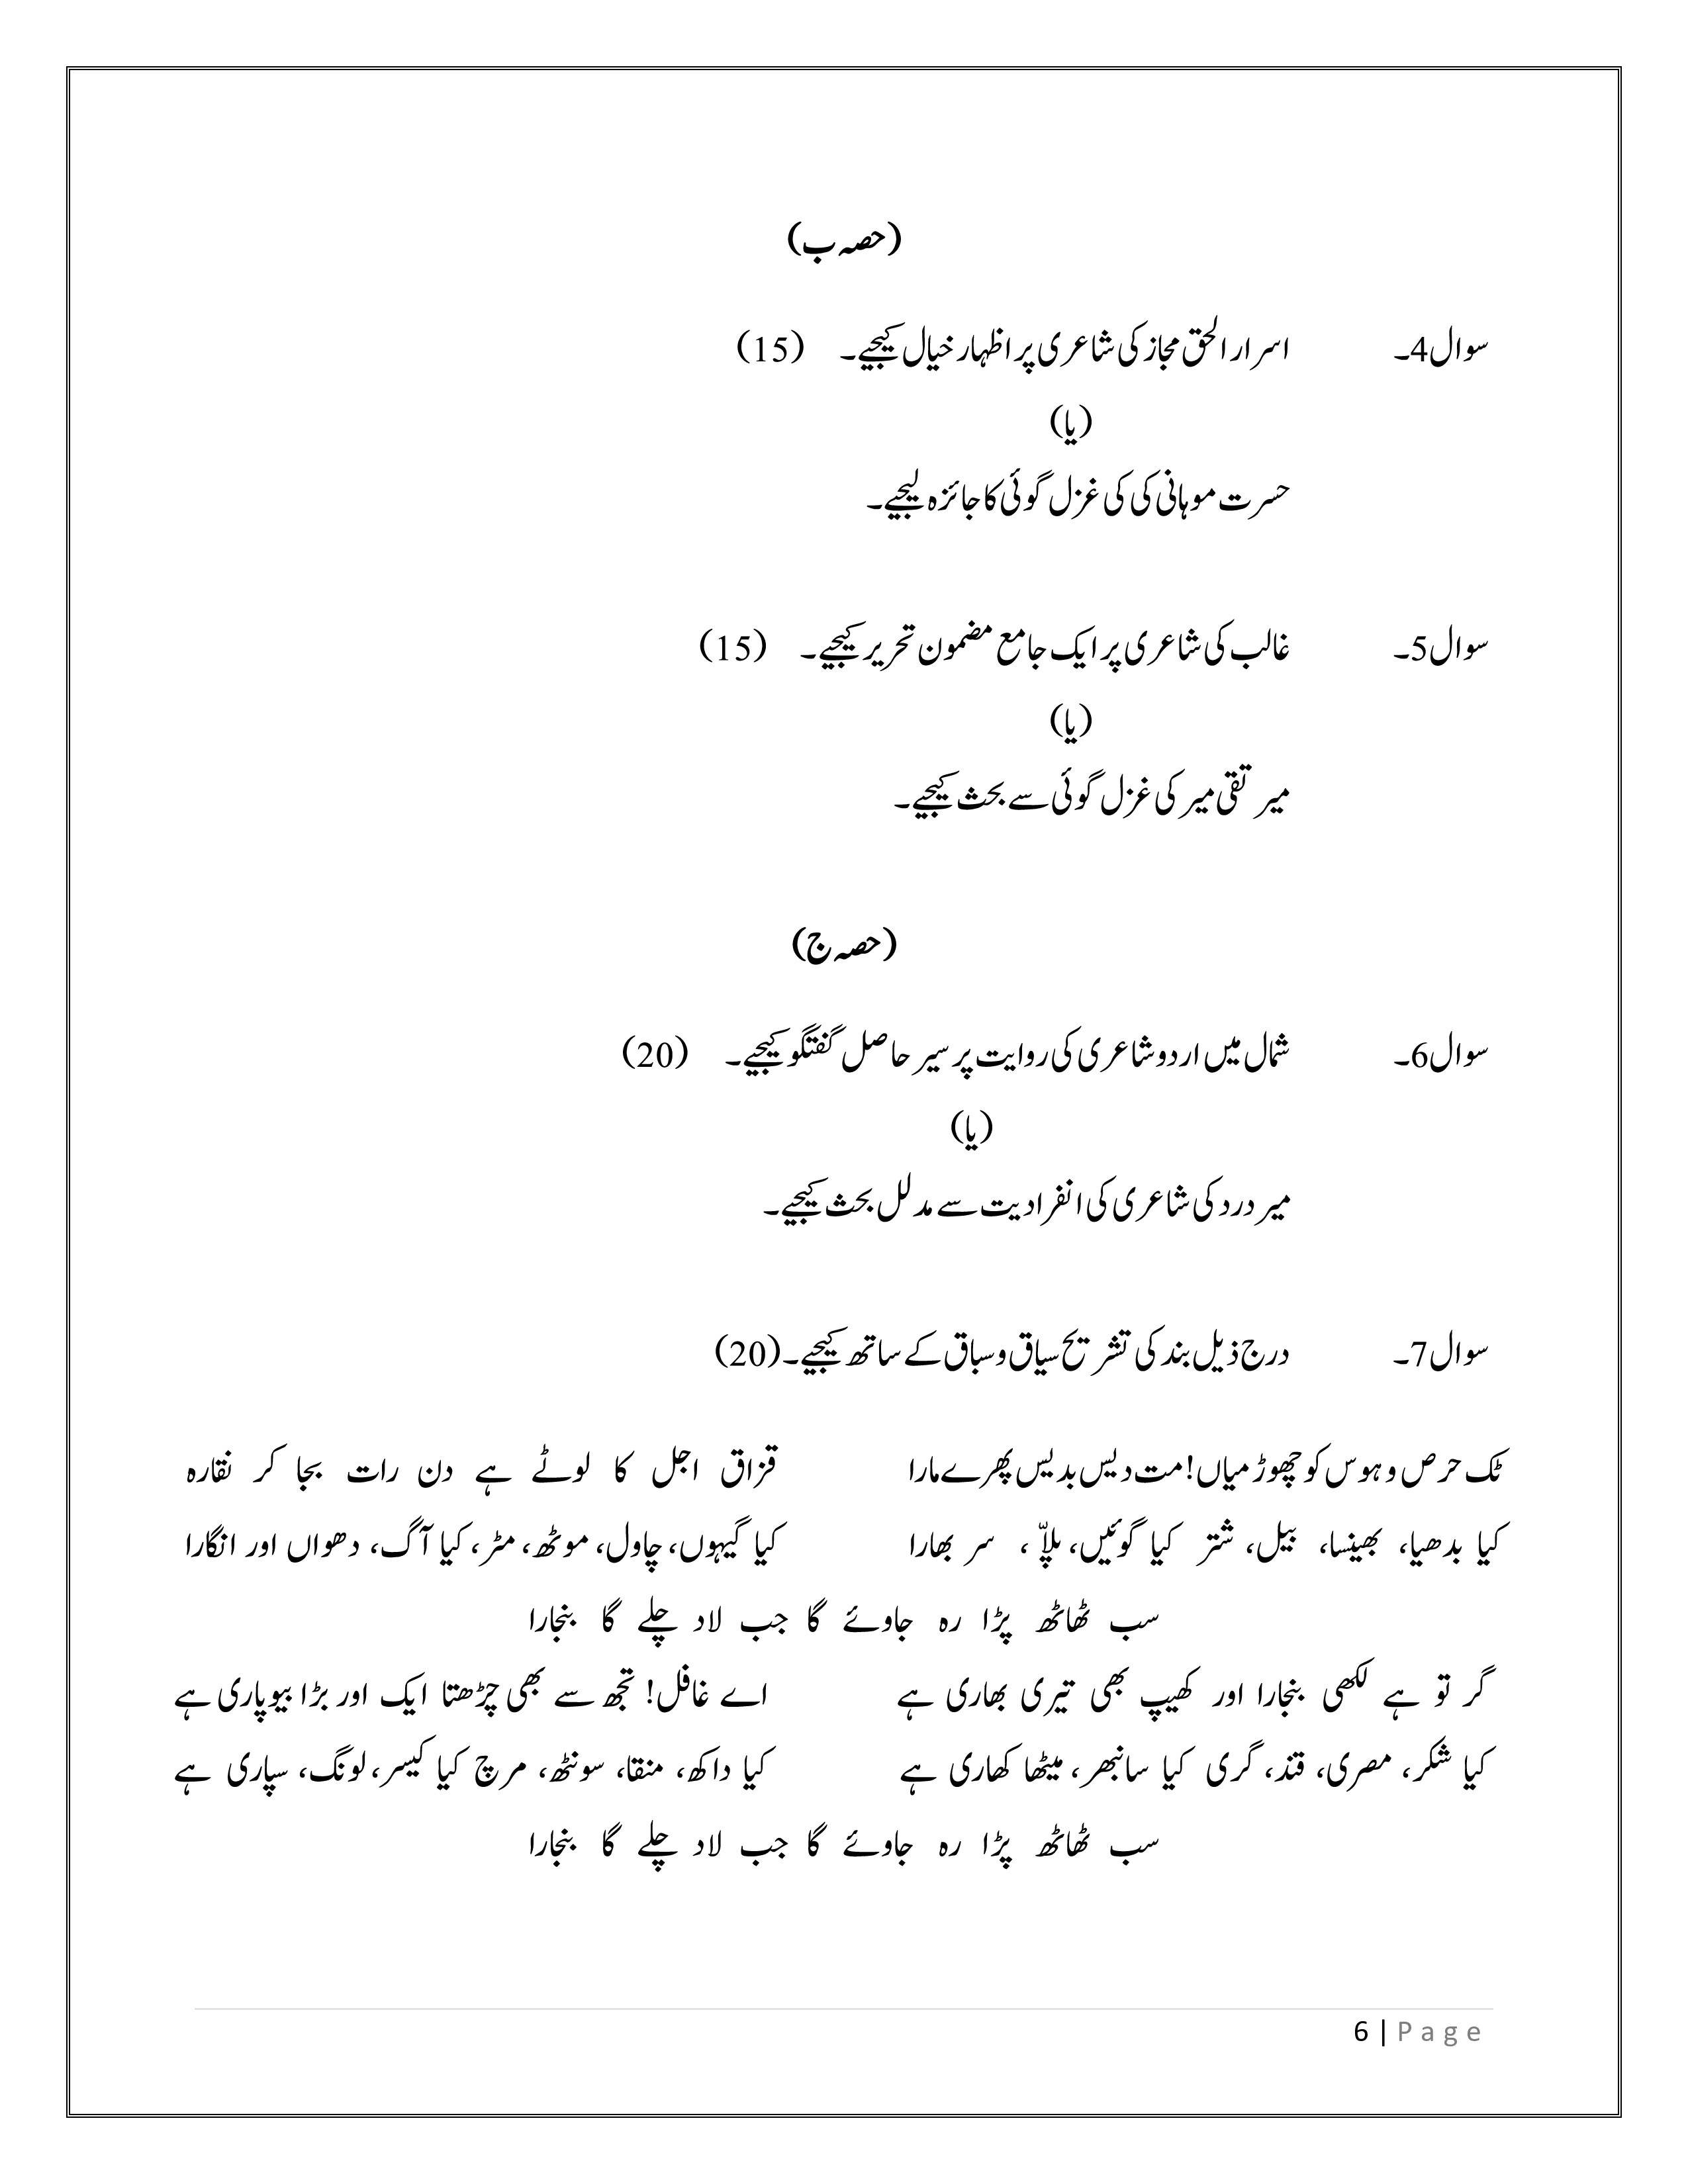 (حصہ ب)
سوال4۔ اسرار الحق مجاز کی شاعری پر اظہار خیال کیجیے۔ (15)
(یا)
حسرت موہانی کی کی غزل گوئی کا جائزہ لیجیے۔
سوال5۔ غالب کی شاعری پر ایک جامع مضمون تحریر کیجیے۔ (15)
(یا)
میر تقی میر کی غزل گوئی سے بحث کیجیے۔
(حصہ ج)
سوال6۔ شمال میں اردو شاعری کی روایت پر سیر حاصل گفتگو کیجیے۔ (20)
(یا)
میر درد کی شاعری کی انفرادیت سے مدلل بحث کیجیے۔
سوال7۔ درج ذیل بند کی تشریح سیاق و سباق کے ساتھ کیجیے۔(20)
ٹک حرص و ہوس کو چھوڑ میاں! مت دیس بدیس پھرے مارا قزاق اجل کا لوٹے ہے دن رات بجا کر نقارہ
کیا بدھیا، بھینسا، بیل، شتر کیا گوئیں، پلاّ ، سر بھارا کیا گیہوں، چاول، موٹھ، مٹر، کیا آگ، دھواں اور انگارا
سب ٹھاٹھ پڑا رہ جاوئے گا جب لاد چلے گا بنجارا
گر تو ہے لکھی بنجارا اور کھیپ بھی تیری بھاری ہے اے غافل! تجھ سے بھی چڑھتا ایک اور بڑا بیوپاری ہے
کیا شکر، مصری، قند، گری کیا سانبھر، میٹھا کھاری ہے کیا داکھ، منقا، سونٹھ، مرچ کیا کیسر، لونگ، سپاری ہے
سب ٹھاٹھ پڑا رہ جاوئے گا جب لاد چلے گا بنجارا
6 | Page